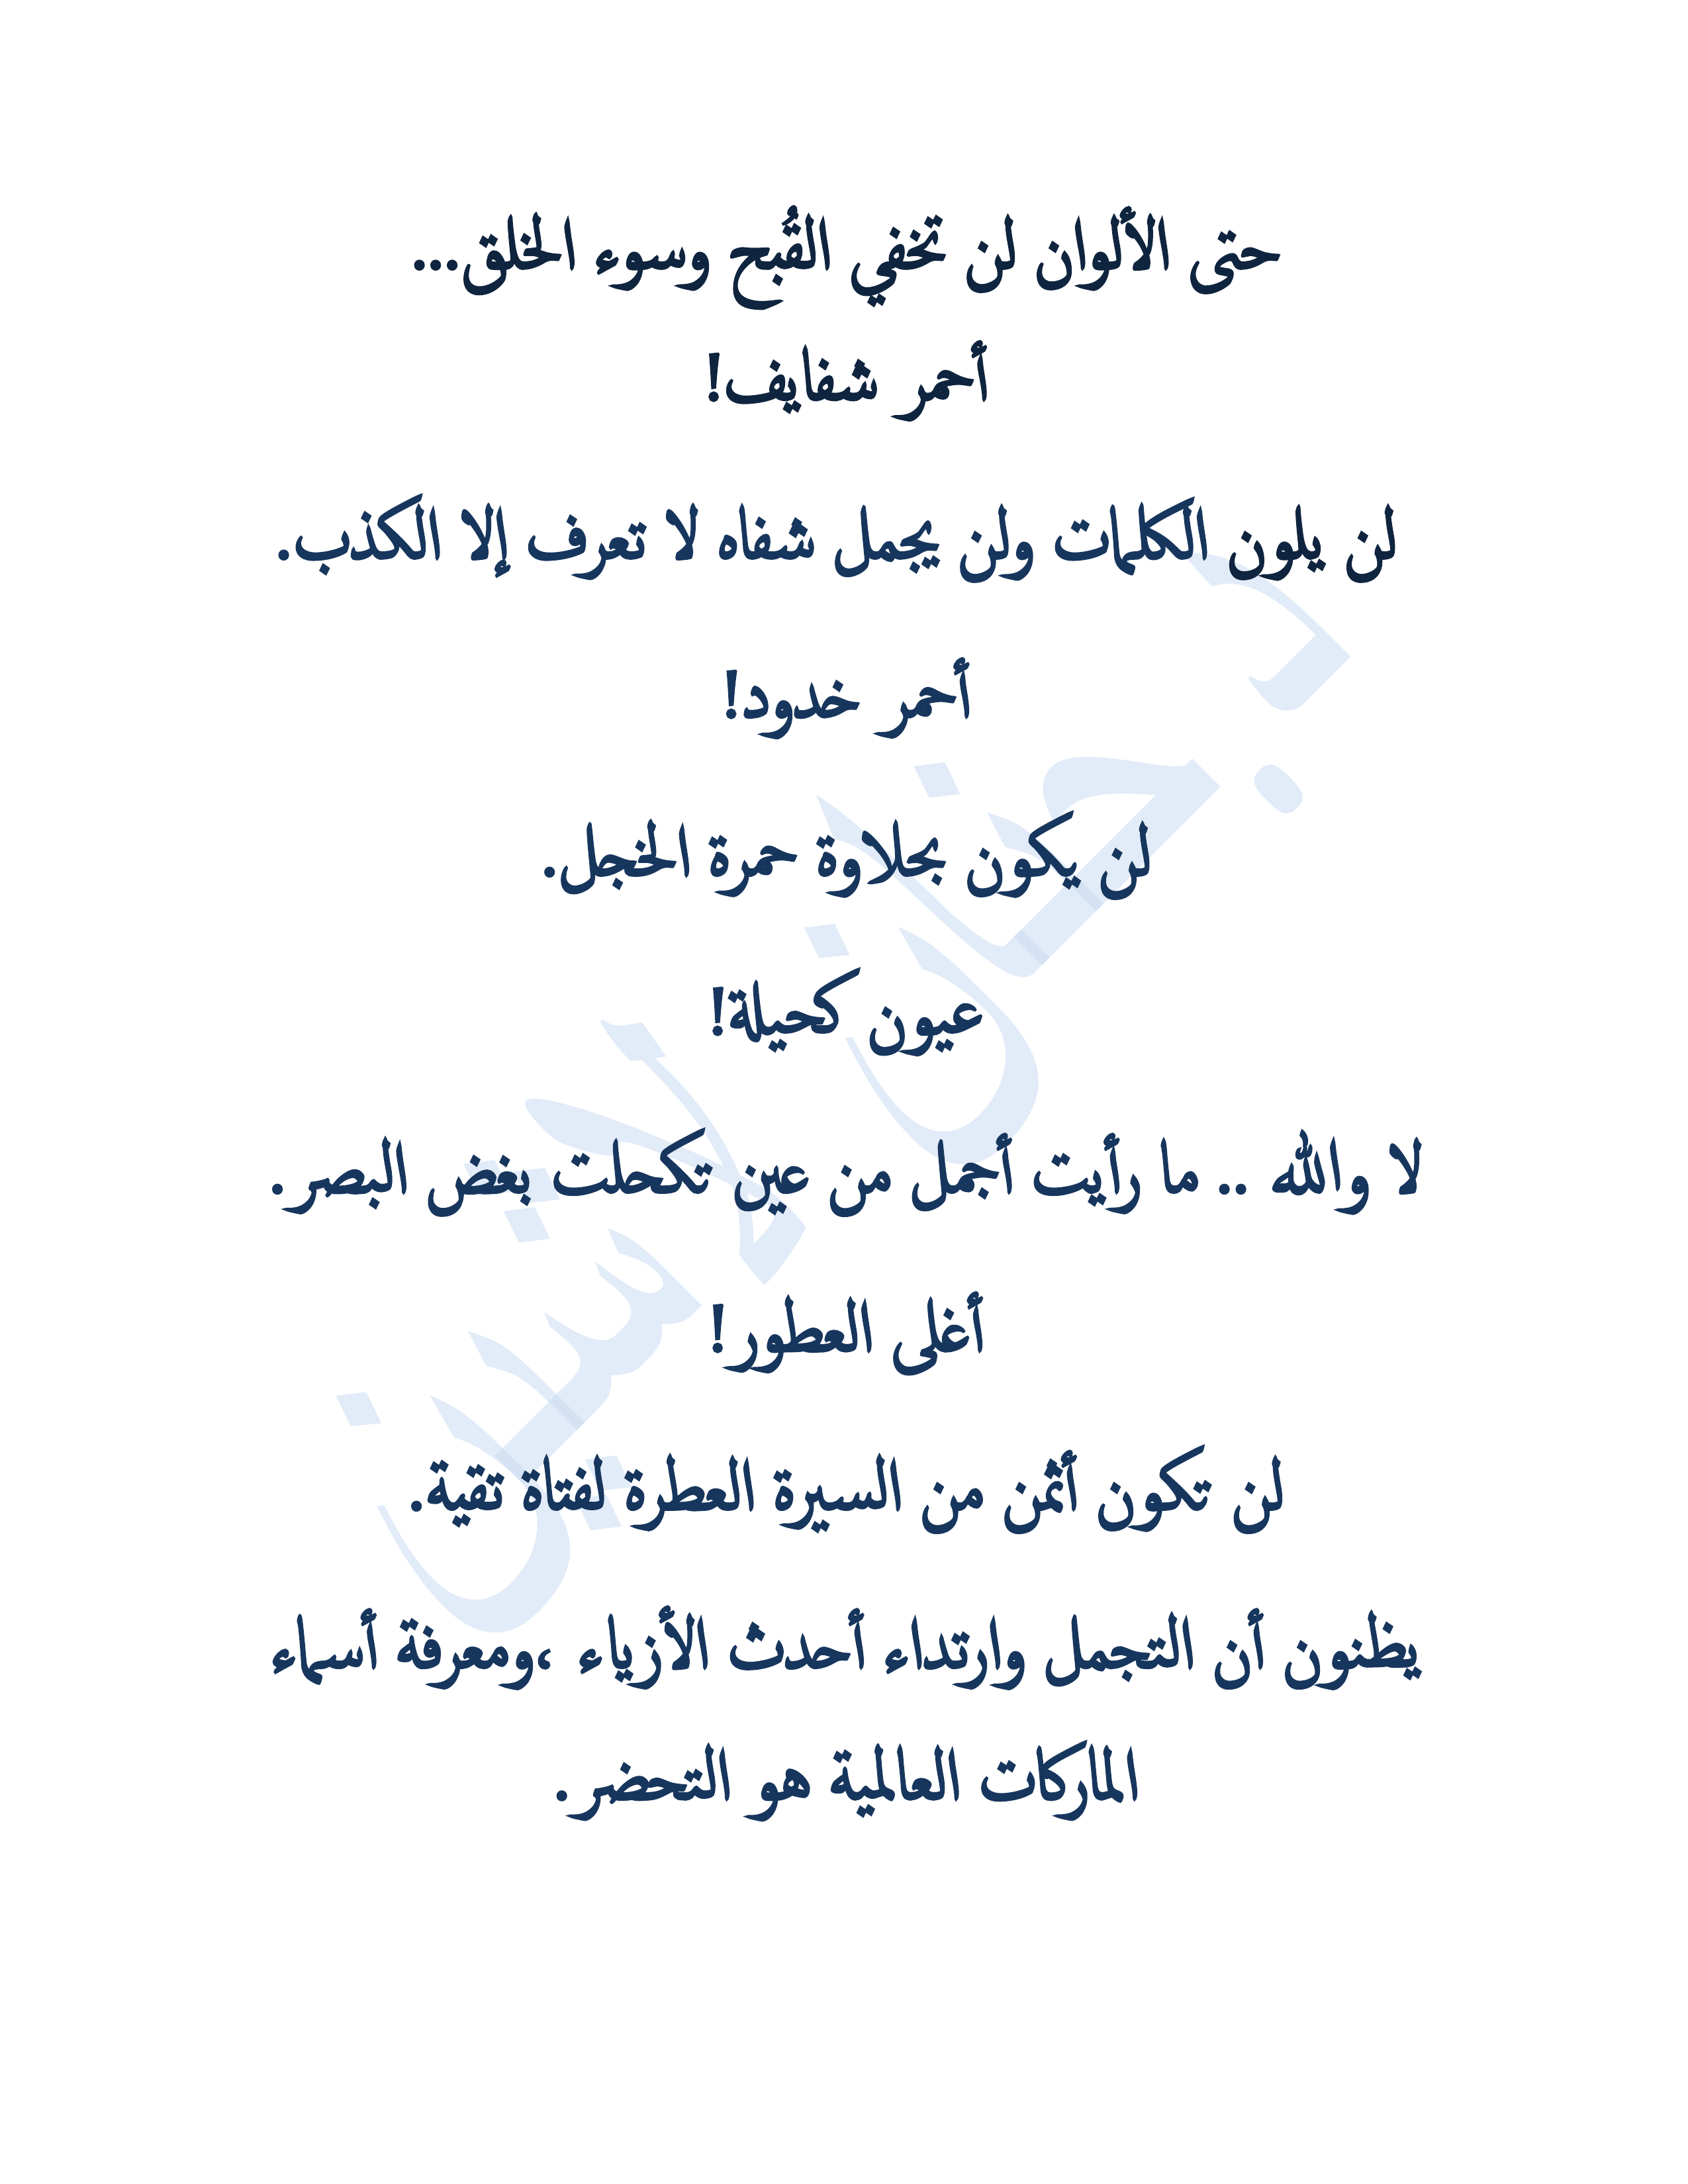 حتى الألوان لن تخفي القُبح وسوء الخلق...
أحمر شفايف!
لن يلون الكلمات ولن يجمل شفاه لا تعرف إلا الكذب.
أحمر خدود!
لن يكون بحلاوة حمرة الخجل.
عيون كحيلة!
لا والله .. ما رأيت أجمل من عين تكحلت بغض البصر.
أغلى العطور!
لن تكون أثمن من السيرة العطرة لفتاة تقية.
يظنون أن التجمل وارتداء أحدث الأزياء ،ومعرفة أسماء
الماركات العالمية هو التحضر.